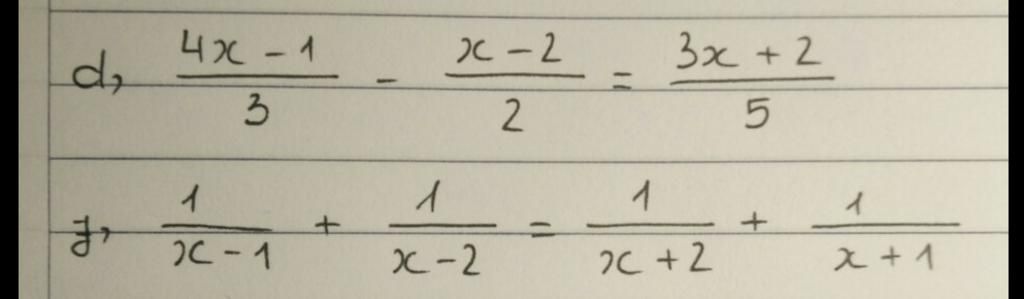 d, (4x - 1)/3 - (x - 2)/2 = (3x + 2)/5
j, 1/(x - 1) + 1/(x - 2) = 1/(x + 2) + 1/(x + 1)